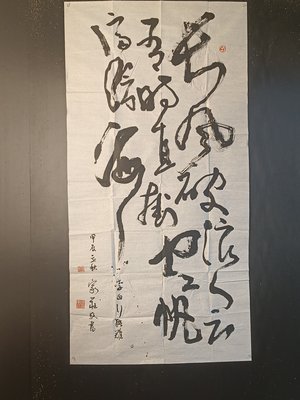 长风破浪会
有时直挂云帆
济沧海
李白行路难
甲辰立秋
书